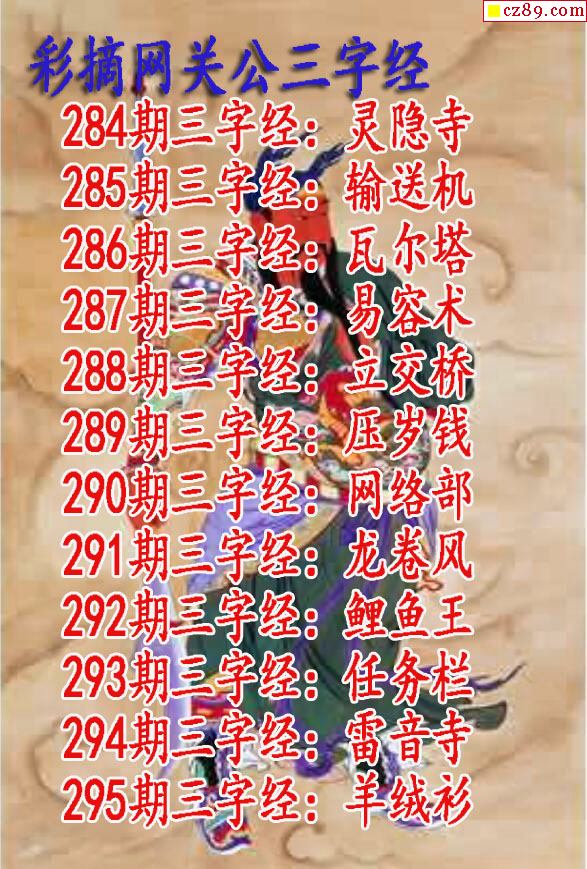 cz89.com
彩摘网关公三字经
284期三字经：灵隐寺
285期三字经：输送机
286期三字经：瓦尔塔
287期三字经：易容术
288期三字经：立交桥
289期三字经：压岁钱
290期三字经：网络部
291期三字经：龙卷风
292期三字经：鲤鱼王
293期三字经：任务栏
294期三字经：雷音寺
295期三字经：羊绒衫